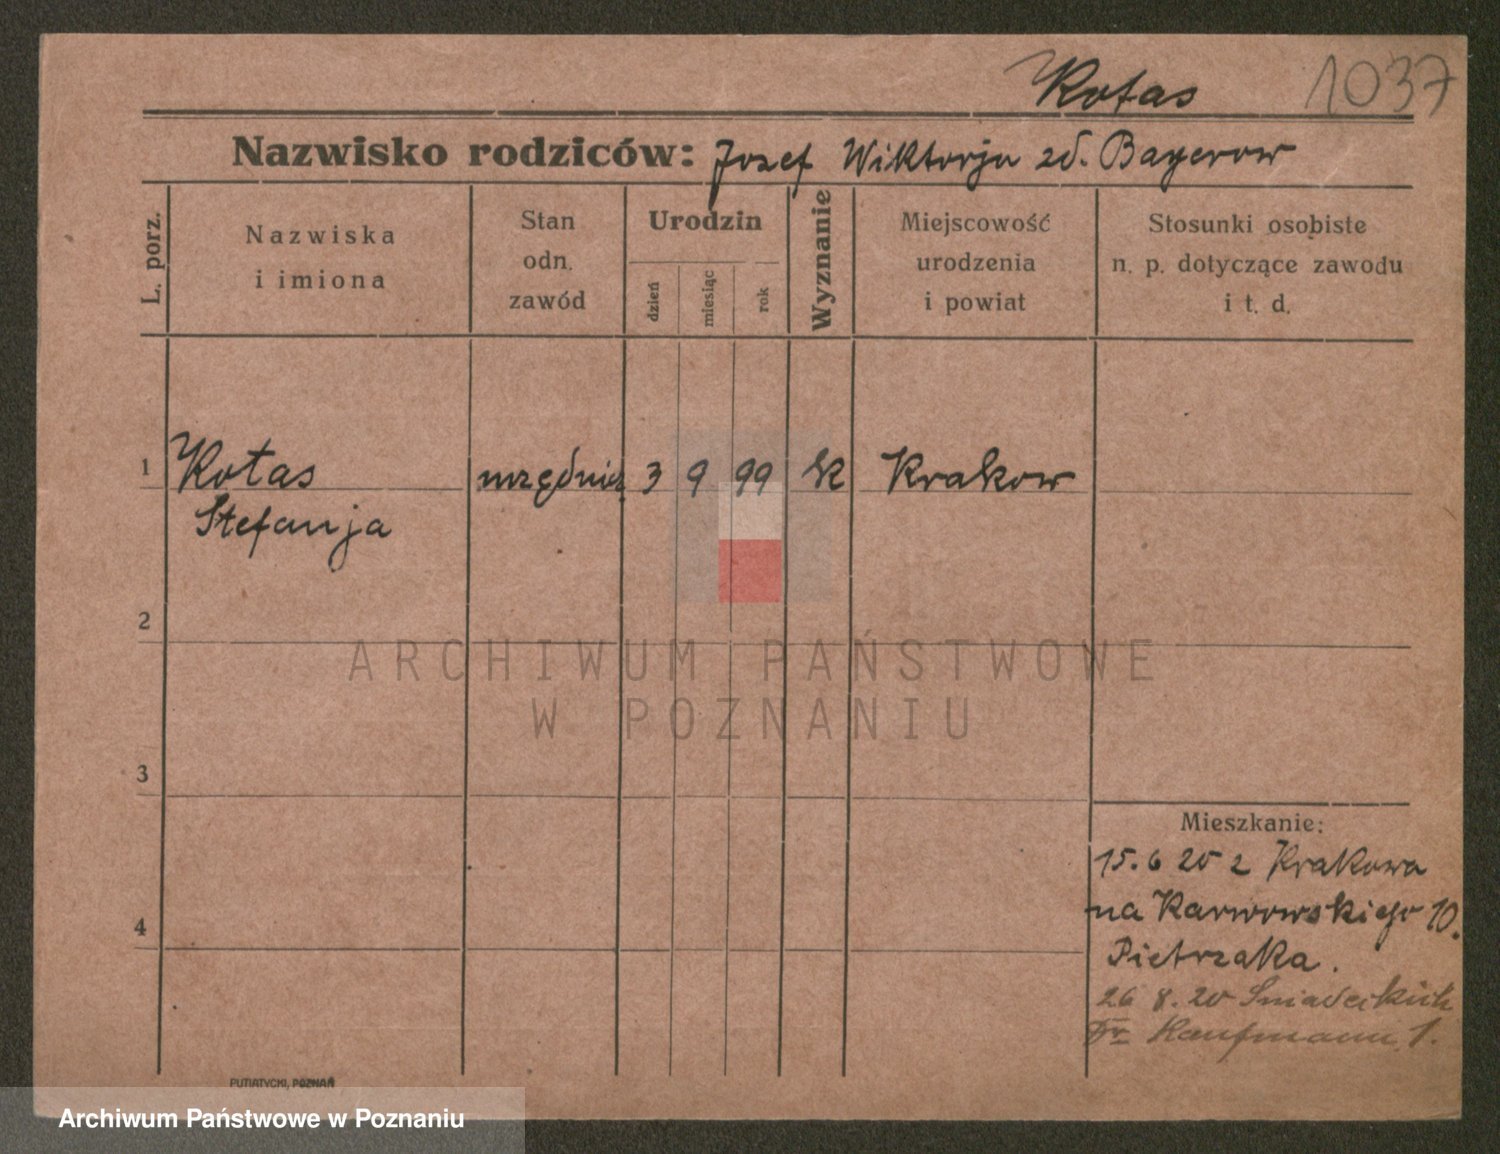 Kotas 1037
Nazwisko rodziców: Jozef Wiktorja zd. Bayerow
L. porz.
Nazwiska
i imiona
Stan
odn.
zawód
Urodzin
dzień
miesiąc
rok
Wyznanie
Miejscowość
urodzenia
i powiat
Stosunki osobiste
n. p. dotyczące zawodu
i t. d.
1 Kotas urzędnicz 3 9 99 rk Krakow
Stefanja
2
ARCHIWUM PAŃSTWOWE
W POZNANIU
3
4
Mieszkanie:
15.6 20 z Krakowa
na Karwowskiego 10.
Pietrzaka.
26 8. 20 Sniadeckich
Kaufmann 1.
PUTIATYCKI, POZNAŃ
Archiwum Państwowe w Poznaniu